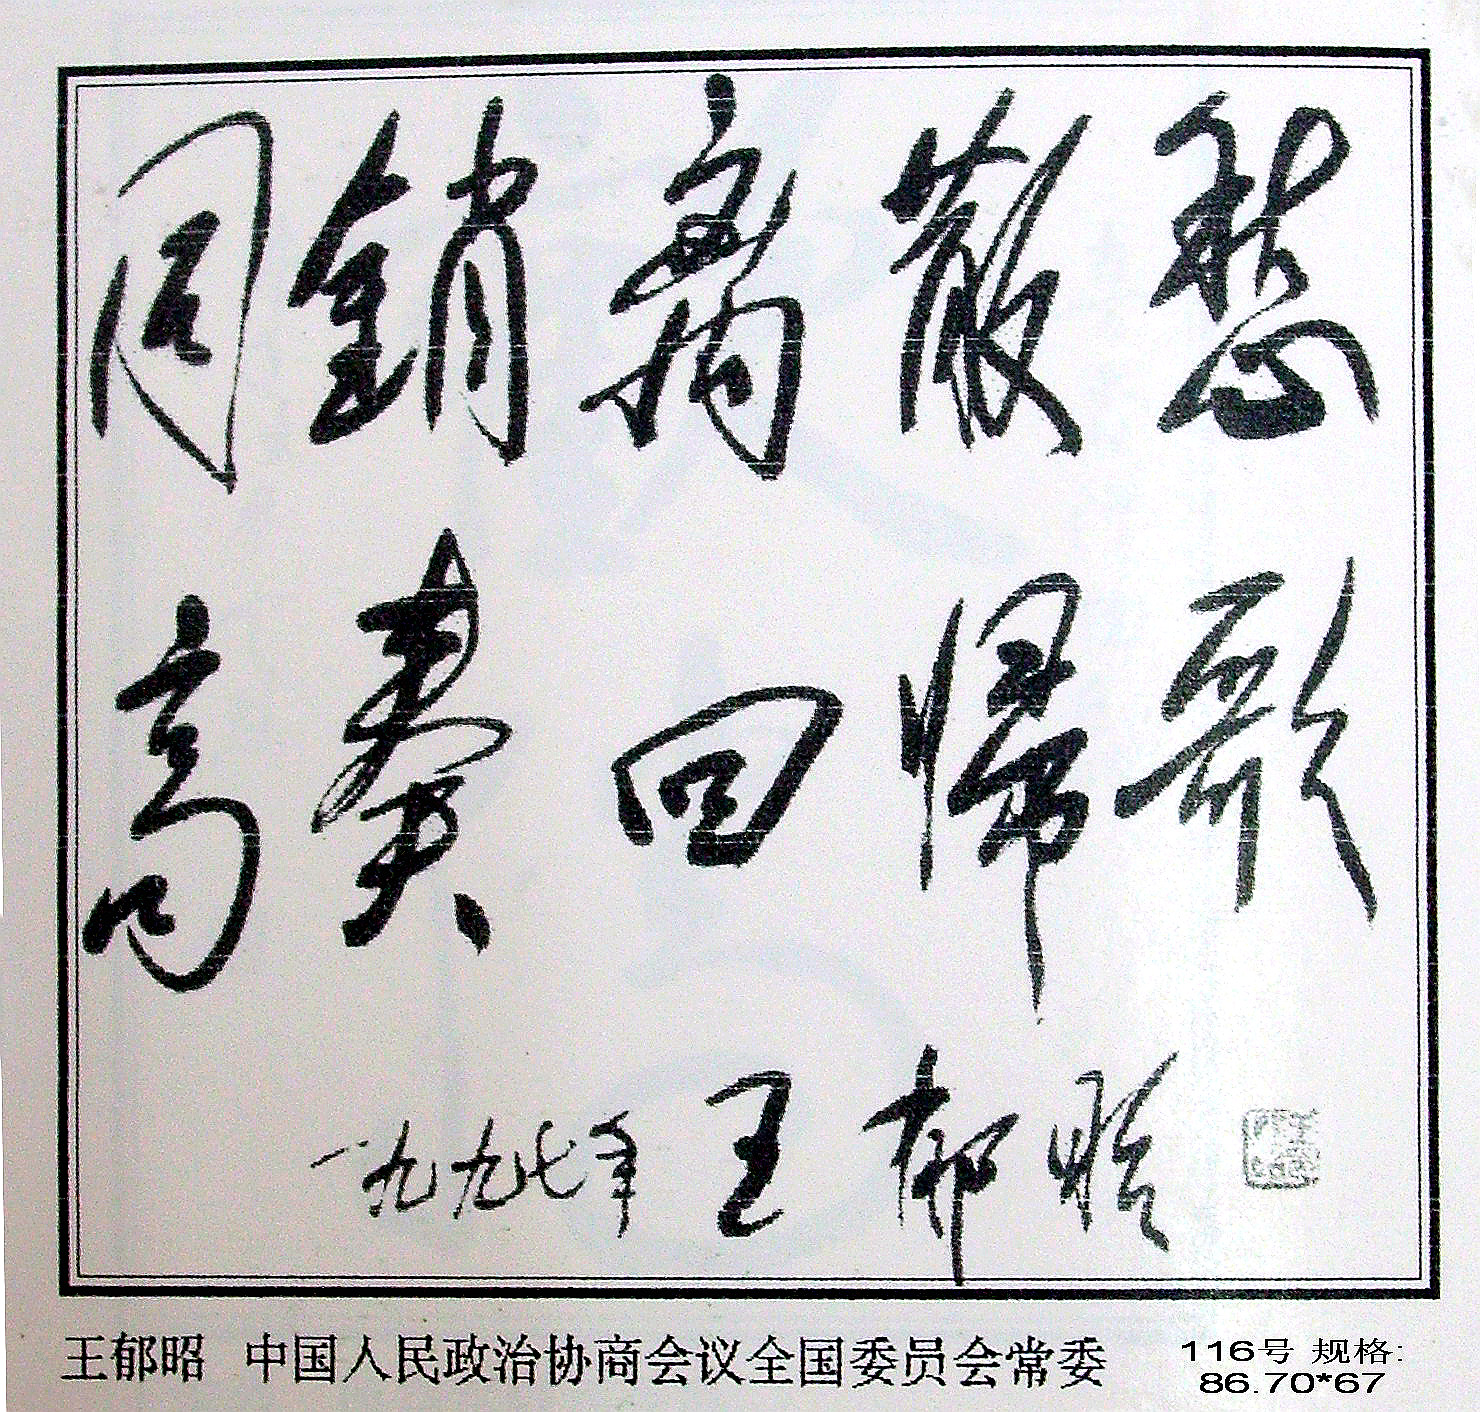 同銷离散愁
高奏回歸歌
一九九七年 王郁昭
王郁昭 中国人民政治协商会议全国委员会常委
116号 规格:
86.70*67